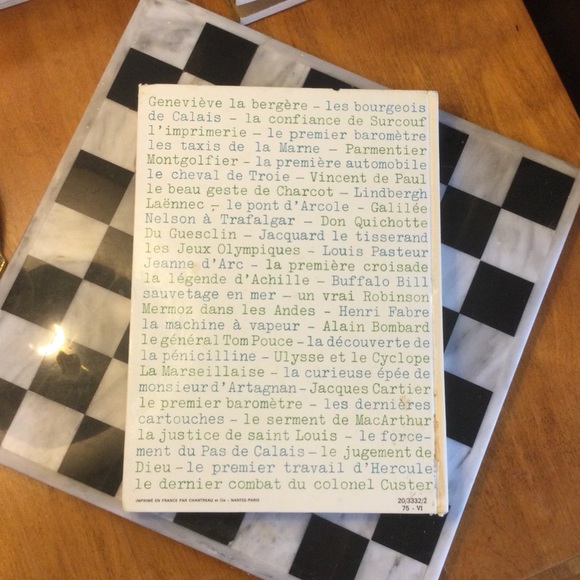 Geneviève la bergère – les bourgeois
de Calais – la confiance de Surcouf
l'imprimerie – le premier baromètre
les taxis de la Marne – Parmentier
Montgolfier – la première automobile
le cheval de Troie – Vincent de Paul
le beau geste de Charcot – Lindbergh
Laënnec – le pont d'Arcole – Galilée
Nelson à Trafalgar – Don Quichotte
Du Guesclin – Jacquard le tisserand
les Jeux Olympiques – Louis Pasteur
Jeanne d'Arc – la première croisade
la légende d'Achille – Buffalo Bill
sauvetage en mer – un vrai Robinson
Mermoz dans les Andes – Henri Fabre
la machine à vapeur – Alain Bombard
le général Tom Pouce – la découverte de
la pénicilline – Ulysse et le Cyclope
La Marseillaise – la curieuse épée de
monsieur d'Artagnan – Jacques Cartier
le premier baromètre – les dernières
cartouches – le serment de MacArthur
la justice de saint Louis – le force-
ment du Pas de Calais – le jugement de
Dieu – le premier travail d'Hercule
le dernier combat du colonel Custer
IMPRIMÉ EN FRANCE PAR CHANTREAU et Cie - NANTES-PARIS
20/3332/2
75 - VI